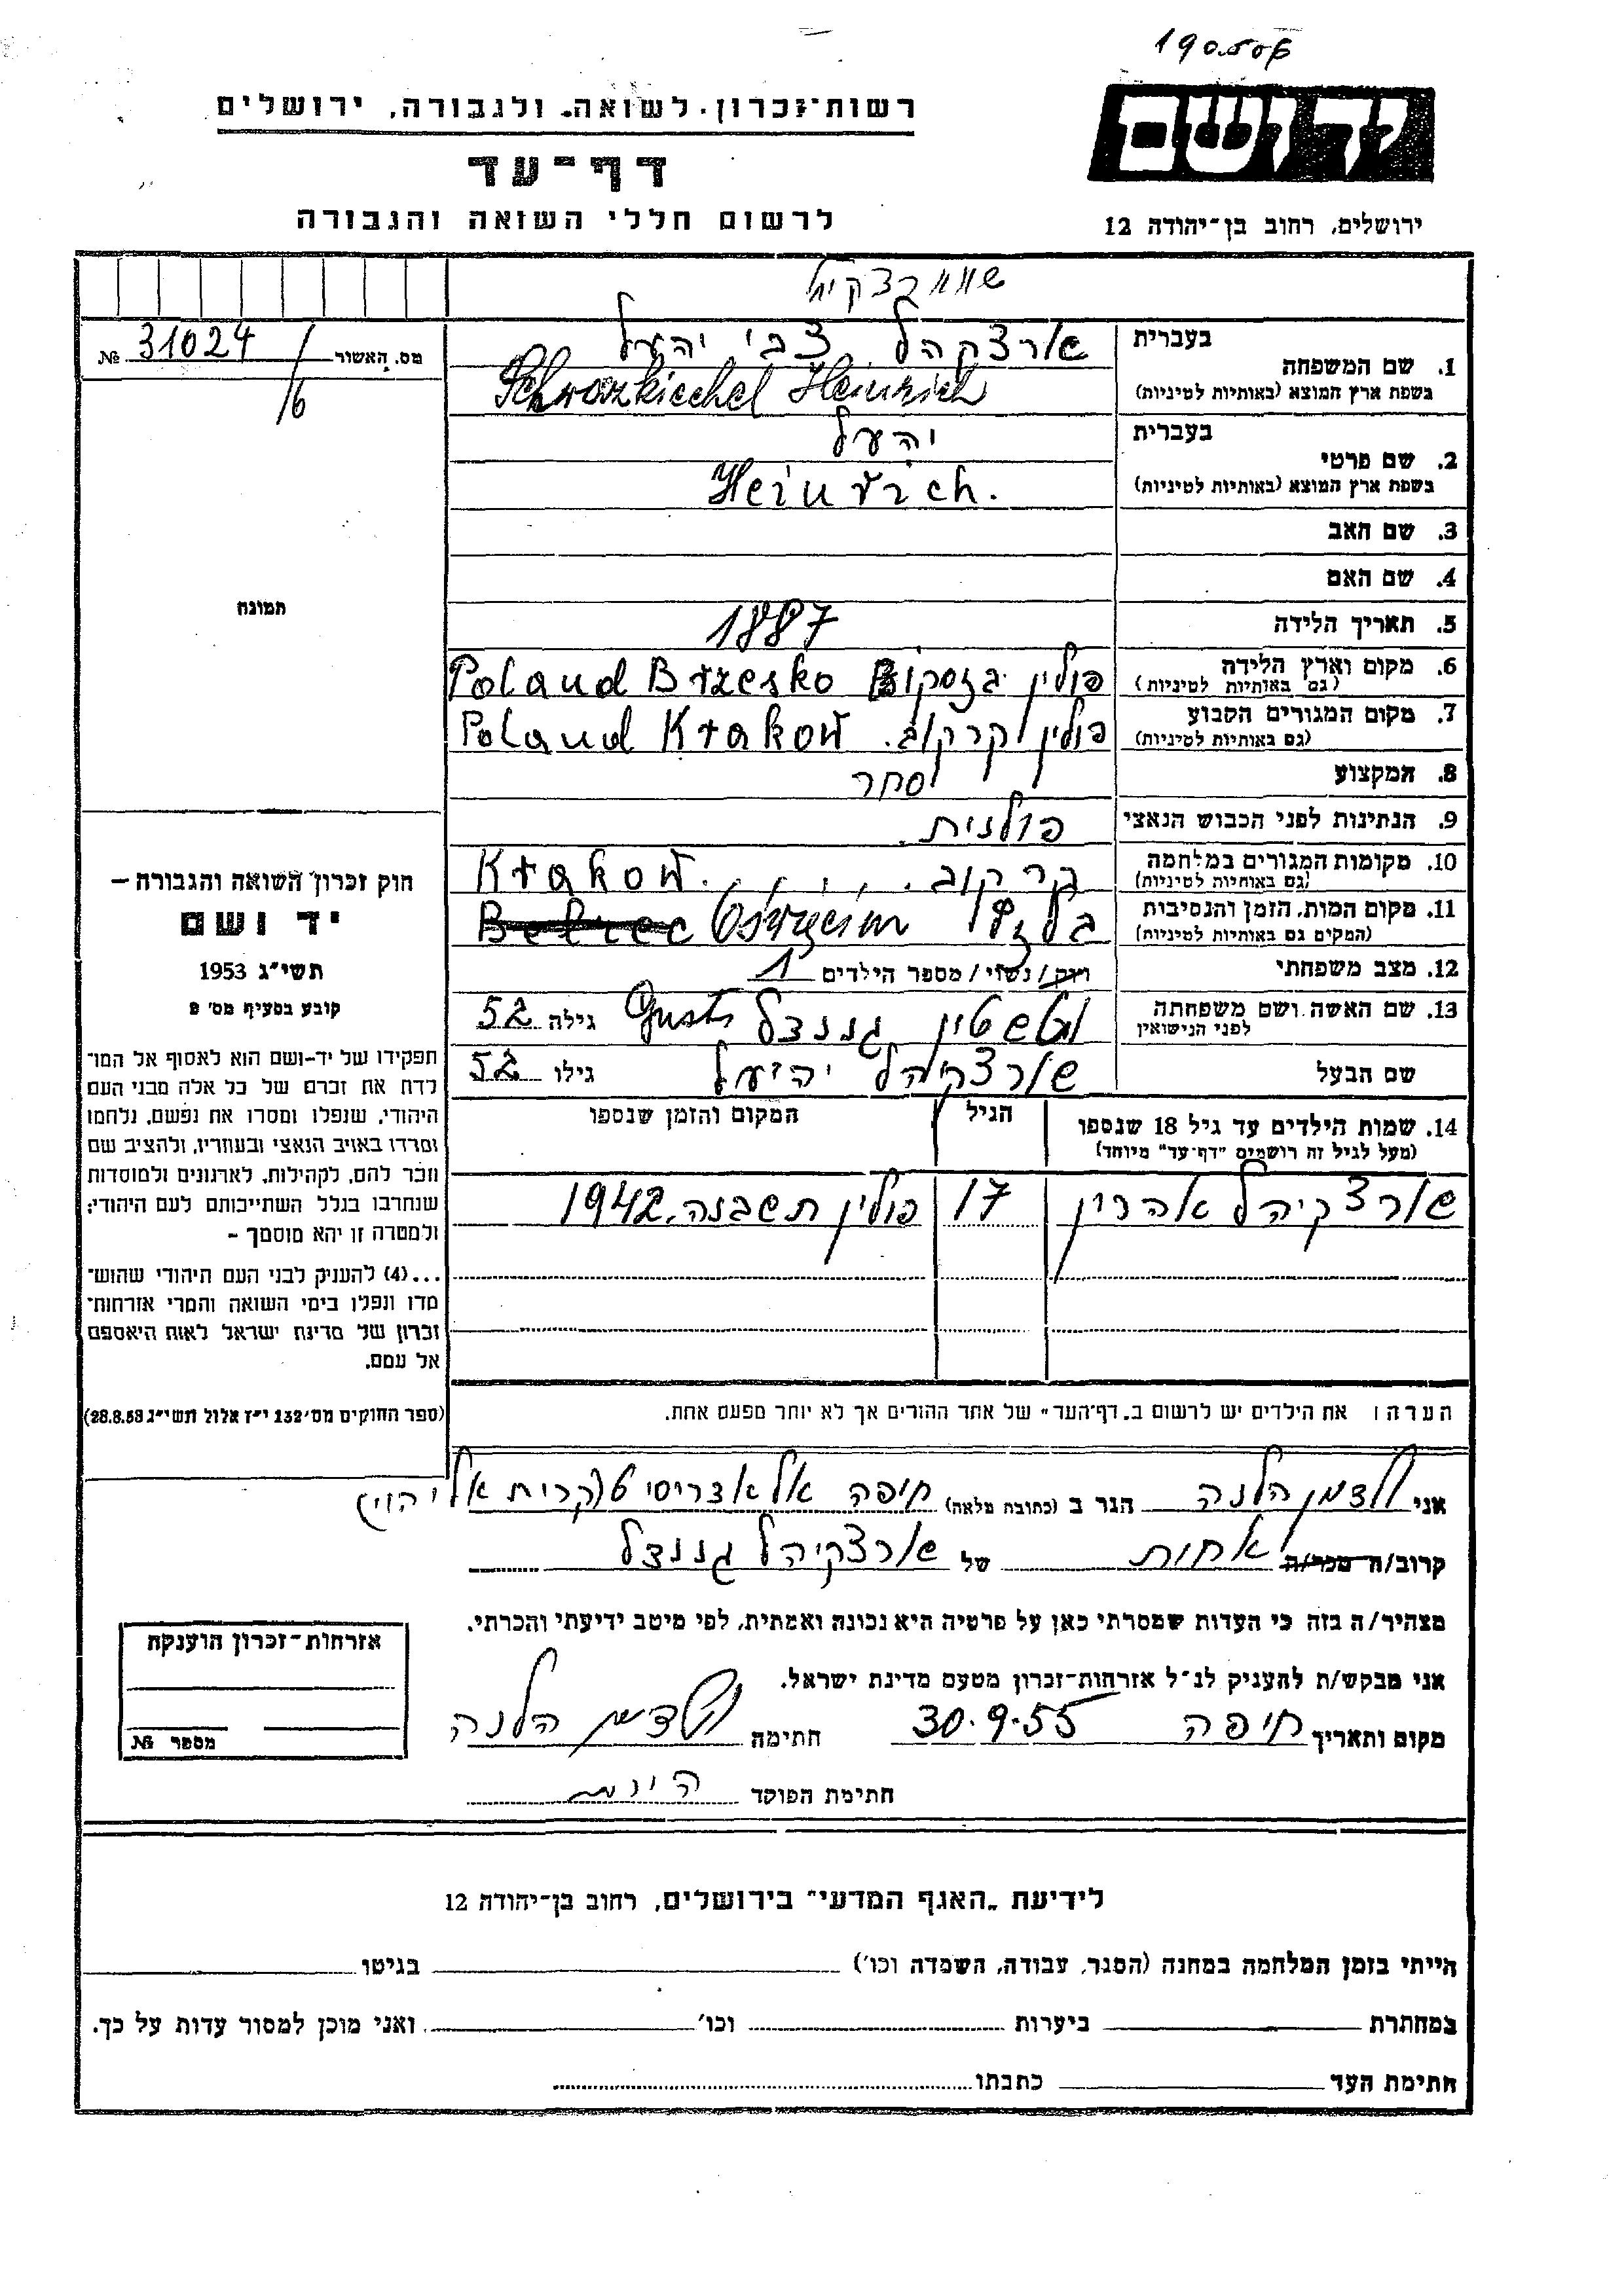 190506
יד ושם
רשות-זכרון לשואה ולגבורה, ירושלים
דף-עד
לרשום חללי השואה והגבורה
ירושלים, רחוב בן-יהודה 12
מס. האשור 31024 / 6 №
תמונה
בעברית שורצקהל צבי
1. שם המשפחה
בשפת ארץ המוצא (באותיות לטיניות) Heinrich
בעברית
2. שם פרטי
בשפת ארץ המוצא (באותיות לטיניות) Heinrich.
3. שם האב
4. שם האם
5. תאריך הלידה 1887
6. מקום וארץ הלידה
(גם באותיות לטיניות) פולין Poland Brzesko
7. מקום המגורים הקבוע
(גם באותיות לטיניות) פולין קרקוב. Poland Krakow
8. המקצוע סחר
9. הנתינות לפני הכבוש הנאצי פולנית.
10. מקומות המגורים במלחמה
(גם באותיות לטיניות) קרקוב. Krakow.
11. מקום המות, הזמן והנסיבות
(המקום גם באותיות לטיניות) Belzec Oświęcim
12. מצב משפחתי רווק/נשוי/מספר הילדים 1
13. שם האשה ושם משפחתה
לפני הנישואין גננדל Gusta גילה 52
שם הבעל שורצקיהל יחיאל גילו 52
14. שמות הילדים עד גיל 18 שנספו
(מעל לגיל זה רושמים "דף-עד" מיוחד)
הגיל
המקום והזמן שנספו
שורצקיהל אהרון 17 פולין בשנה 1942
הערה: את הילדים יש לרשום ב"דף-העד" של אחד ההורים אך לא יותר מפעם אחת.
חוק זכרון השואה והגבורה –
יד ושם
תשי"ג 1953
קובע בסעיף מס' 2
תפקידו של יד-ושם הוא לאסוף אל המו-
לדת את זכרם של כל אלה מבני העם
היהודי, שנפלו ומסרו את נפשם, נלחמו
ומרדו באויב הנאצי ובעוזריו, ולהציב שם
וזכר להם, לקהילות, לארגונים ולמוסדות
שנחרבו בגלל השתייכותם לעם היהודי;
ולמטרה זו יהא מוסמך –
...(4) להעניק לבני העם היהודי שהוש-
מדו ונפלו בימי השואה והמרי אזרחות-
זכרון של מדינת ישראל לאות היאספם
אל עמם.
(ספר החוקים מס' 132 י"ז אלול תשי"ג 28.8.53)
אני הלנה הגר ב (כתובת מלאה) חיפה
קרוב/ה מכר/ה אחות של שורצקיהל גננדל
מצהיר/ה בזה כי העדות שמסרתי כאן על פרטיה היא נכונה ואמתית, לפי מיטב ידיעתי והכרתי.
אני מבקש/ת להעניק לנ"ל אזרחות-זכרון מטעם מדינת ישראל.
מקום ותאריך חיפה 30.9.55 חתימה הלנה
חתימת הפוקד
אזרחות-זכרון הוענקה
מספר №
לידיעת "האגף המדעי" בירושלים, רחוב בן-יהודה 12
הייתי בזמן המלחמה במחנה (הסגר, עבודה, השמדה וכו') בגיטו
במחתרת ביערות וכו' ואני מוכן למסור עדות על כך.
חתימת העד כתבתו